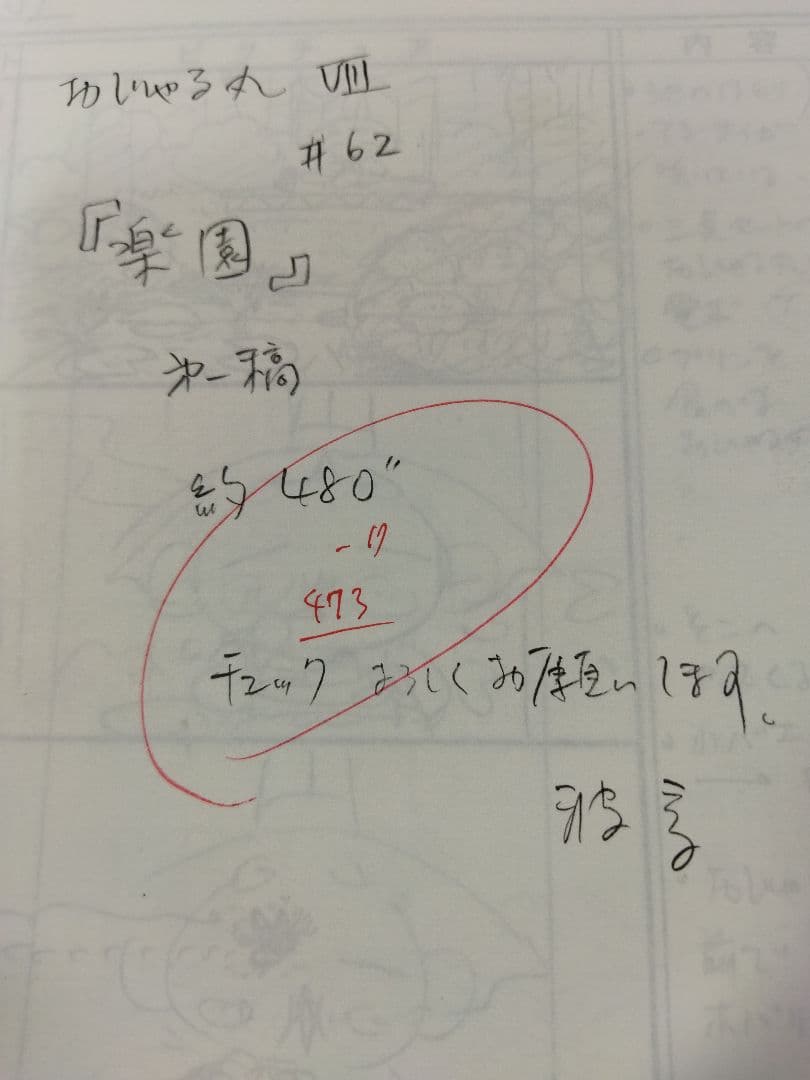 おじゃる丸 Ⅷ
#62
『楽園』
第一稿
約 480"
-7
473
チェック よろしくお願いします。
内 容